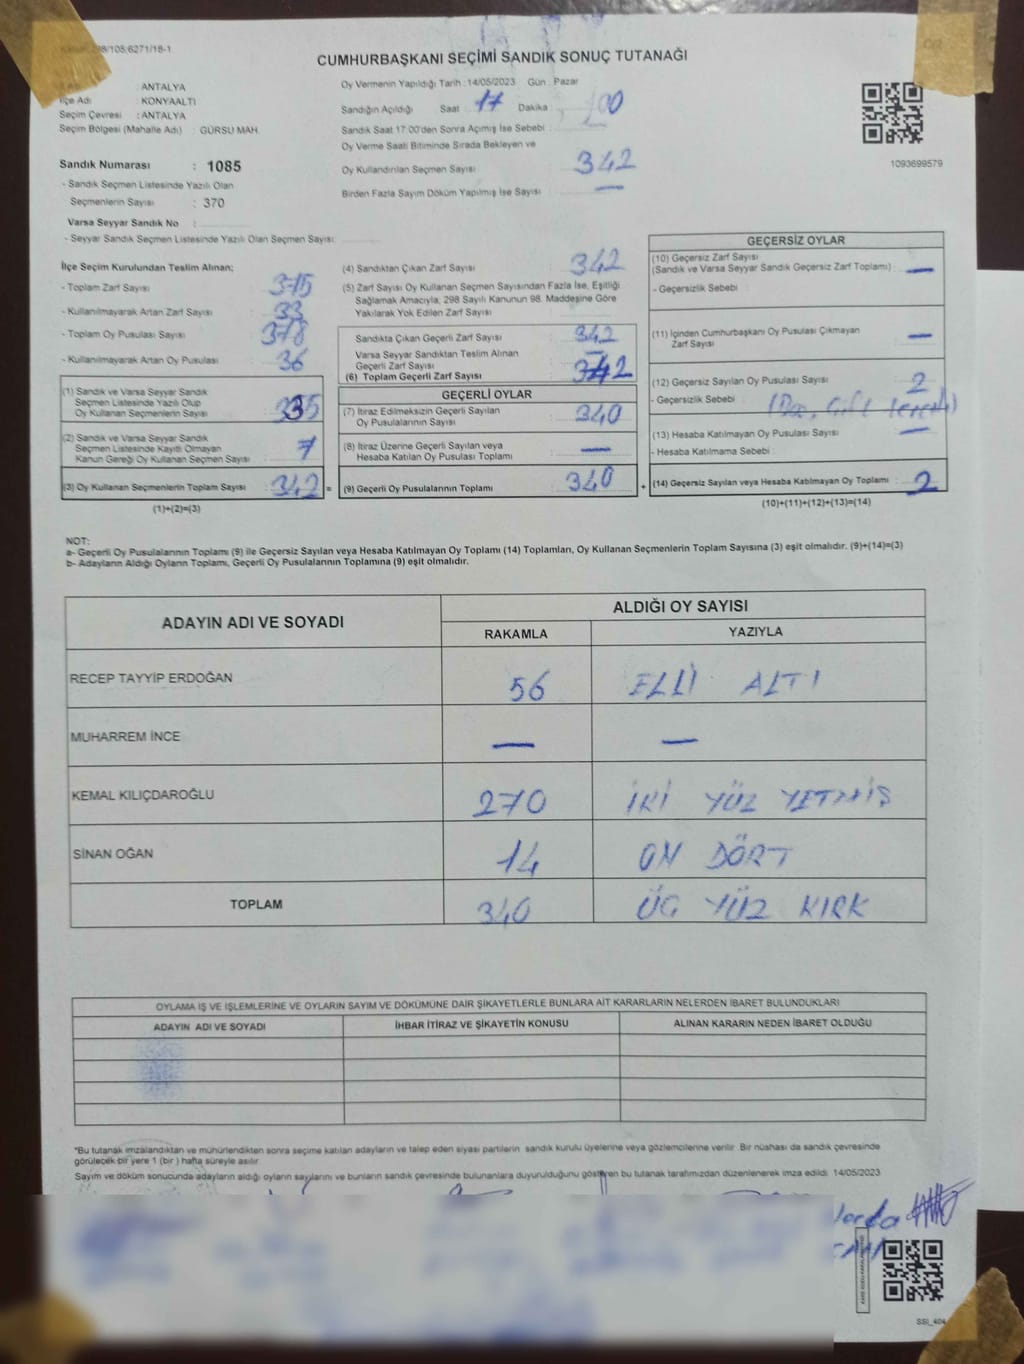 CUMHURBAŞKANI SEÇİMİ SANDIK SONUÇ TUTANAĞI
: ANTALYA
İlçe Adı : KONYAALTI
Seçim Çevresi : ANTALYA
Seçim Bölgesi (Mahalle Adı) : GÜRSU MAH.
Sandık Numarası : 1085
- Sandık Seçmen Listesinde Yazılı Olan
Seçmenlerin Sayısı : 370
Varsa Seyyar Sandık No :
- Seyyar Sandık Seçmen Listesinde Yazılı Olan Seçmen Sayısı:
Oy Vermenin Yapıldığı Tarih : 14/05/2023 Gün : Pazar
Sandığın Açıldığı Saat 17 Dakika : 00
Sandık Saat 17:00'den Sonra Açımış İse Sebebi :
Oy Verme Saati Bitiminde Sırada Bekleyen ve
Oy Kullandırılan Seçmen Sayısı : 342
Birden Fazla Sayım Döküm Yapılmış İse Sayısı : —
1093699579
İlçe Seçim Kurulundan Teslim Alınan;
- Toplam Zarf Sayısı : 375
- Kullanılmayarak Artan Zarf Sayısı : 33
- Toplam Oy Pusulası Sayısı : 378
- Kullanılmayarak Artan Oy Pusulası : 36
(1) Sandık ve Varsa Seyyar Sandık
Seçmen Listesinde Yazılı Olup
Oy Kullanan Seçmenlerin Sayısı : 335
(2) Sandık ve Varsa Seyyar Sandık
Seçmen Listesinde Kayıtlı Olmayan
Kanun Gereği Oy Kullanan Seçmen Sayısı : 7
(3) Oy Kullanan Seçmenlerin Toplam Sayısı : 342 =
(1)+(2)=(3)
(4) Sandıktan Çıkan Zarf Sayısı : 342
(5) Zarf Sayısı Oy Kullanan Seçmen Sayısından Fazla İse, Eşitliği
Sağlamak Amacıyla, 298 Sayılı Kanunun 98. Maddesine Göre
Yakılarak Yok Edilen Zarf Sayısı :
Sandıkta Çıkan Geçerli Zarf Sayısı : 342
Varsa Seyyar Sandıktan Teslim Alınan
Geçerli Zarf Sayısı : —
(6) Toplam Geçerli Zarf Sayısı : 342
GEÇERLİ OYLAR
(7) İtiraz Edilmeksizin Geçerli Sayılan
Oy Pusulalarının Sayısı : 340
(8) İtiraz Üzerine Geçerli Sayılan veya
Hesaba Katılan Oy Pusulası Toplamı : —
(9) Geçerli Oy Pusulalarının Toplamı : 340 +
GEÇERSİZ OYLAR
(10) Geçersiz Zarf Sayısı
(Sandık ve Varsa Seyyar Sandık Geçersiz Zarf Toplamı) : —
- Geçersizlik Sebebi :
(11) İçinden Cumhurbaşkanı Oy Pusulası Çıkmayan
Zarf Sayısı : —
(12) Geçersiz Sayılan Oy Pusulası Sayısı : 2
- Geçersizlik Sebebi :
(13) Hesaba Katılmayan Oy Pusulası Sayısı : —
- Hesaba Katılmama Sebebi :
(14) Geçersiz Sayılan veya Hesaba Katılmayan Oy Toplamı : 2
(10)+(11)+(12)+(13)=(14)
NOT:
a- Geçerli Oy Pusulalarının Toplamı (9) ile Geçersiz Sayılan veya Hesaba Katılmayan Oy Toplamı (14) Toplamları, Oy Kullanan Seçmenlerin Toplam Sayısına (3) eşit olmalıdır. (9)+(14)=(3)
b- Adayların Aldığı Oyların Toplamı, Geçerli Oy Pusulalarının Toplamına (9) eşit olmalıdır.
ADAYIN ADI VE SOYADI
ALDIĞI OY SAYISI
RAKAMLA YAZIYLA
RECEP TAYYİP ERDOĞAN 56 ELLİ ALTI
MUHARREM İNCE — —
KEMAL KILIÇDAROĞLU 270 İKİ YÜZ YETMİŞ
SİNAN OĞAN 14 ON DÖRT
TOPLAM 340 ÜÇ YÜZ KIRK
OYLAMA İŞ VE İŞLEMLERİNE VE OYLARIN SAYIM VE DÖKÜMÜNE DAİR ŞİKAYETLERLE BUNLARA AİT KARARLARIN NELERDEN İBARET BULUNDUKLARI
ADAYIN ADI VE SOYADI İHBAR İTİRAZ VE ŞİKAYETİN KONUSU ALINAN KARARIN NEDEN İBARET OLDUĞU
*Bu tutanak imzalandıktan ve mühürlendikten sonra seçime katılan adayların ve talep eden siyasi partilerin sandık kurulu üyelerine veya gözlemcilerine verilir. Bir nüshası da sandık çevresinde
görülecek bir yere 1 (bir) hafta süreyle asılır.
Sayım ve döküm sonucunda adayların aldığı oyların sayılarını ve bunların sandık çevresinde bulunanlara duyurulduğunu gösteren bu tutanak tarafımızdan düzenlenerek imza edildi. 14/05/2023